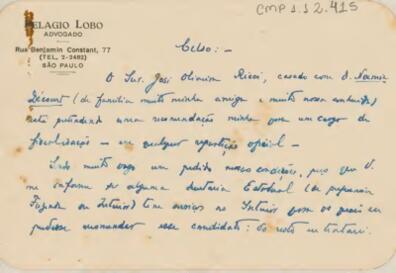 CMP 1.1.2.415
PELAGIO LOBO
ADVOGADO
Rua Benjamin Constant, 77
(TEL. 2-2482)
SÃO PAULO
Celso: -
O Snr. José Oliveira Ricci, casado com D. Noemia
(de familia muito minha amiga e muito nossa conhecida)
está pretendendo uma recomendação minha para um cargo de
fiscalização — em qualquer repartição oficial —
vago um pedido nessas condições, peço que V.
me informe se alguma Estadual (de
Fazenda ou Interior) tem serviços no Interior para os quais eu
pudesse recomendar esse candidato: